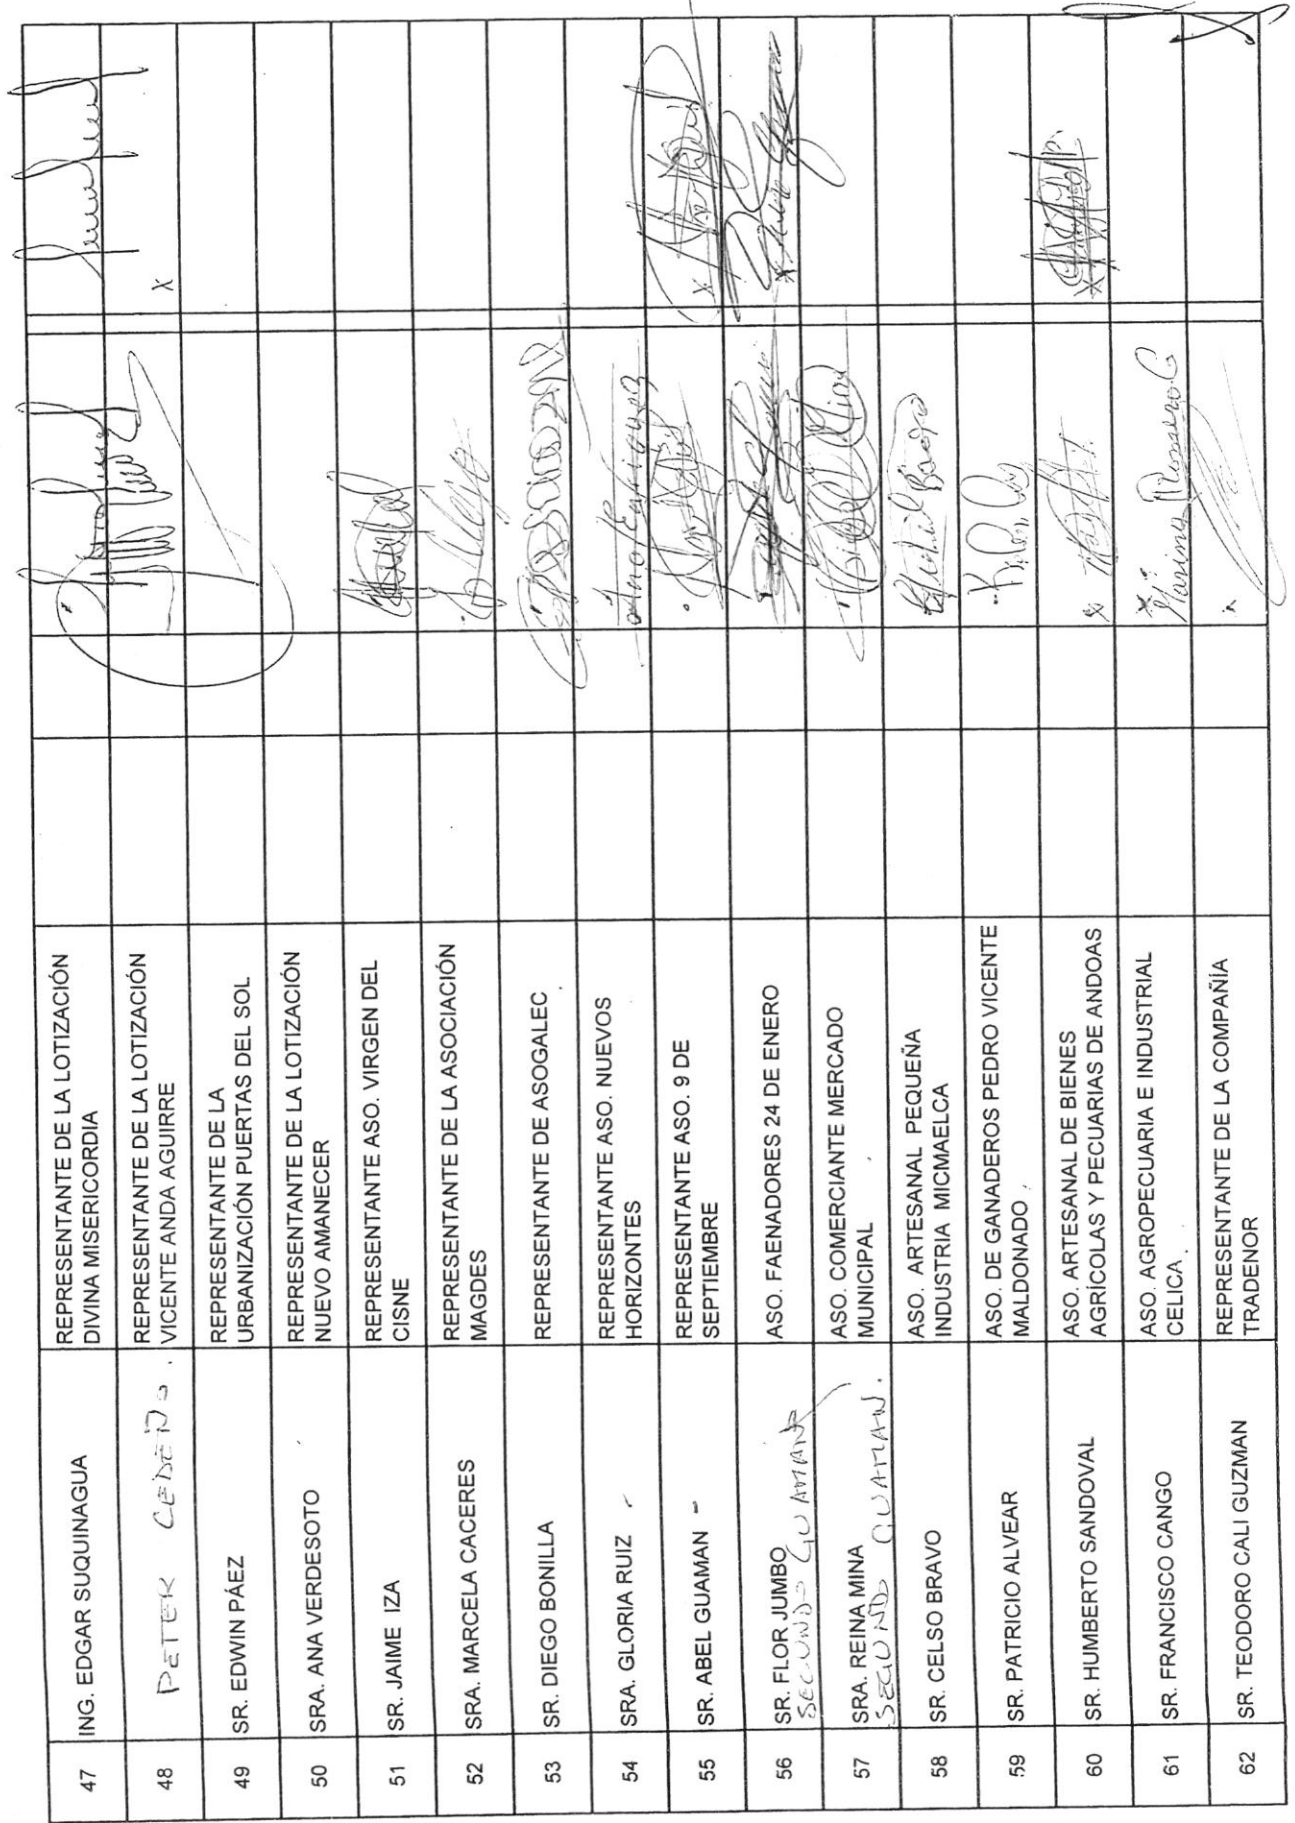 47 ING. EDGAR SUQUINAGUA REPRESENTANTE DE LA LOTIZACIÓN
DIVINA MISERICORDIA
48 PETER CEDEÑO. REPRESENTANTE DE LA LOTIZACIÓN
VICENTE ANDA AGUIRRE
x
49 SR. EDWIN PÁEZ REPRESENTANTE DE LA
URBANIZACIÓN PUERTAS DEL SOL
50 SRA. ANA VERDESOTO REPRESENTANTE DE LA LOTIZACIÓN
NUEVO AMANECER
51 SR. JAIME IZA REPRESENTANTE ASO. VIRGEN DEL
CISNE
52 SRA. MARCELA CACERES REPRESENTANTE DE LA ASOCIACIÓN
MAGDES
53 SR. DIEGO BONILLA REPRESENTANTE DE ASOGALEC
54 SRA. GLORIA RUIZ - REPRESENTANTE ASO. NUEVOS
HORIZONTES
55 SR. ABEL GUAMAN - REPRESENTANTE ASO. 9 DE
SEPTIEMBRE
x
56 SR. FLOR JUMBO ASO. FAENADORES 24 DE ENERO
SEGUNDO GUAMAN
57 SRA. REINA MINA ASO. COMERCIANTE MERCADO
MUNICIPAL
SEGUNDO GUAMAN.
58 SR. CELSO BRAVO ASO. ARTESANAL PEQUEÑA
INDUSTRIA MICMAELCA
59 SR. PATRICIO ALVEAR ASO. DE GANADEROS PEDRO VICENTE
MALDONADO
60 SR. HUMBERTO SANDOVAL ASO. ARTESANAL DE BIENES
AGRÍCOLAS Y PECUARIAS DE ANDOAS
x
61 SR. FRANCISCO CANGO ASO. AGROPECUARIA E INDUSTRIAL
CELICA.
Marina Romero C
62 SR. TEODORO CALI GUZMAN REPRESENTANTE DE LA COMPAÑÍA
TRADENOR